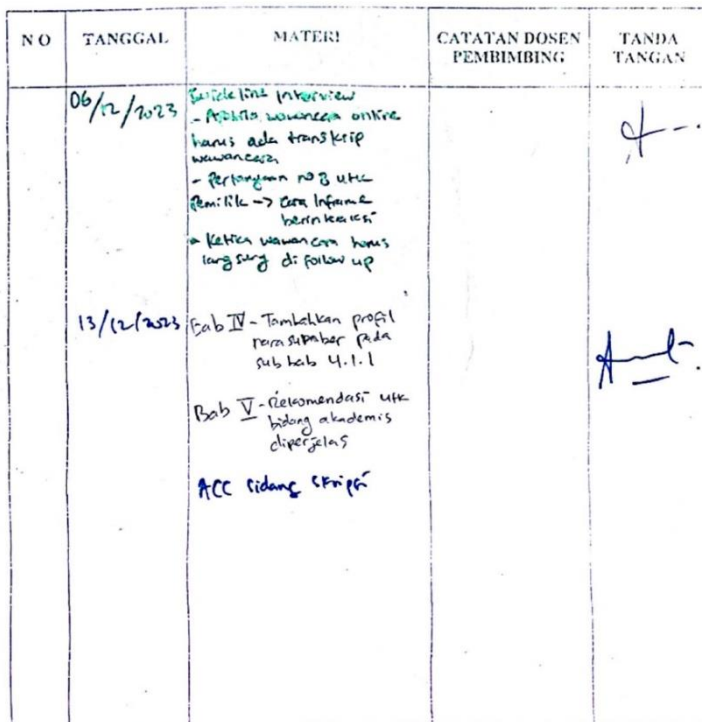 NO TANGGAL MATERI CATATAN DOSEN PEMBIMBING TANDA TANGAN
06/12/2023
Guideline Interview
- Apabila wawancara online
harus ada transkrip
wawancara
- Pertanyaan no 3 utk
Pemilik -> cara Inframe
berinteraksi
- Ketika wawancara harus
langsung di follow up
13/12/2023
Bab IV - Tambahkan profil
narasumber pada
sub bab 4.1.1
Bab V - Rekomendasi utk
bidang akademis
diperjelas
ACC sidang skripsi